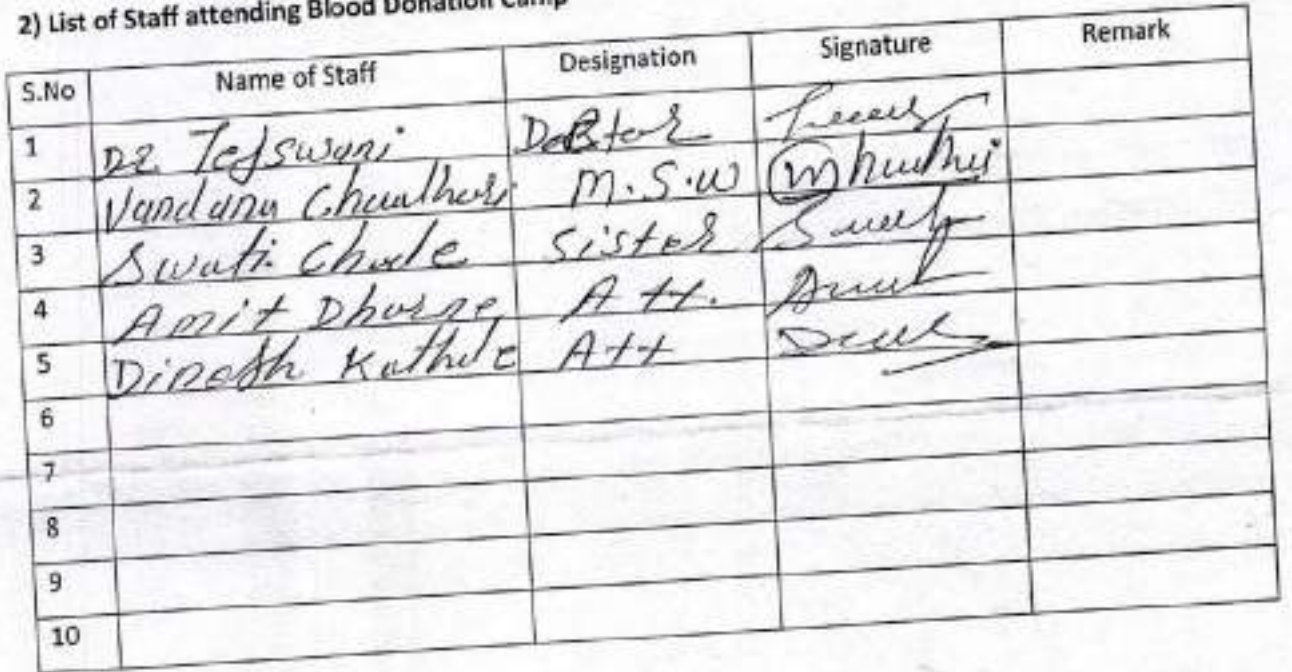 2) List of Staff attending Blood Donation Camp
S.No Name of Staff Designation Signature Remark
1 Dr Tejswani Doctor
2 Vandana Chaudhari M.S.W
3 Swati Chode Sister
4 Amit Dhorne Att.
5 Dinesh Kathole Att
6
7
8
9
10